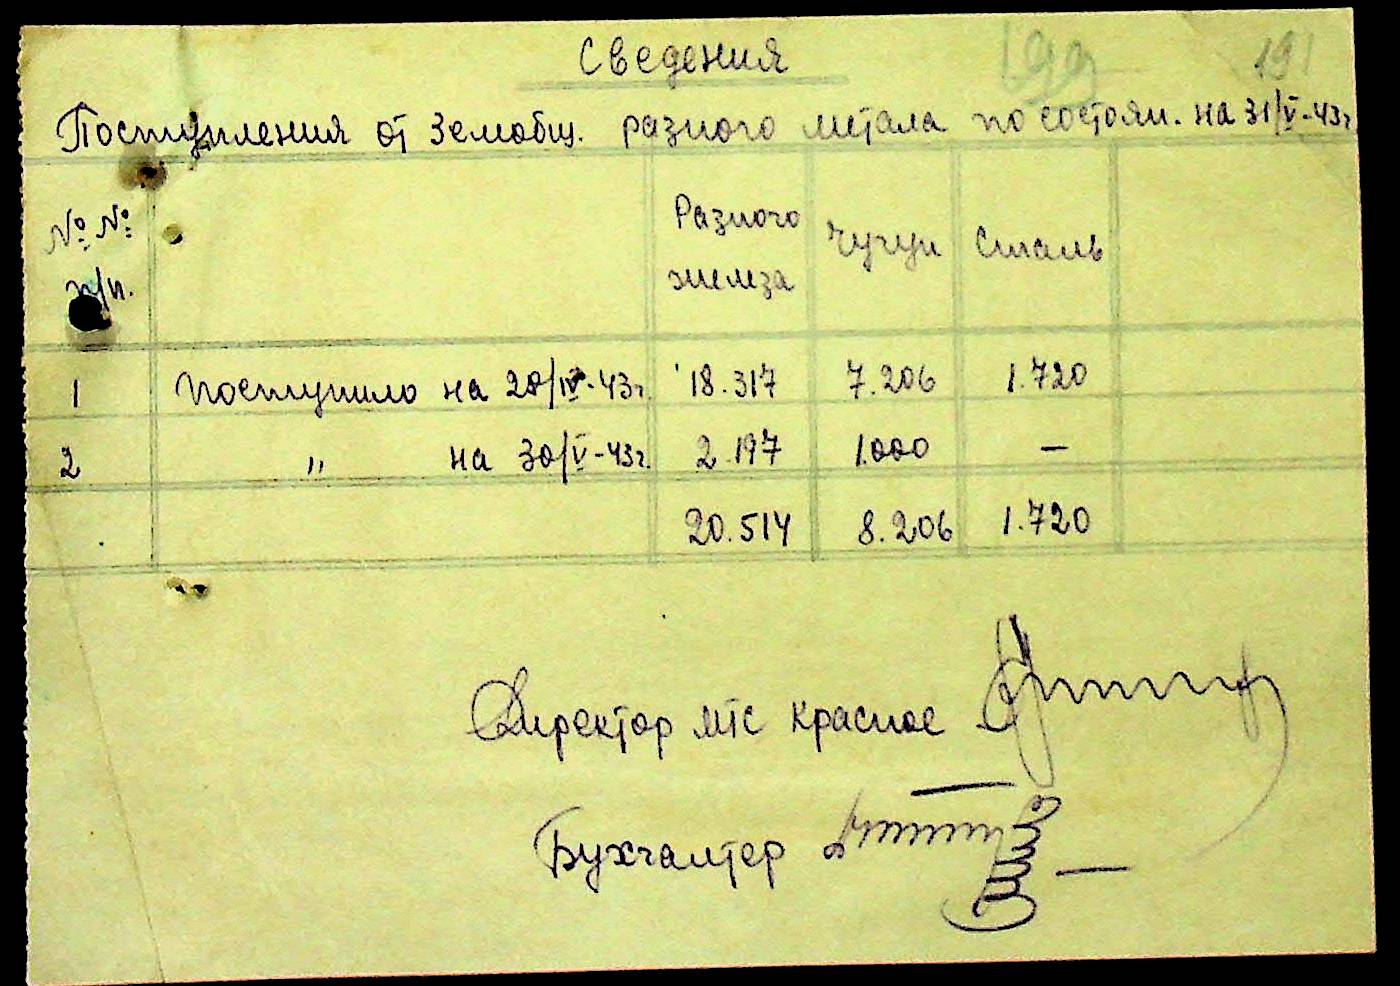 199 191
Сведения
Поступления от Земобщ. разного метала по состоян. на 31/V-43г.
№ № п/п. Разного железа Чугун Сталь
1 Поступило на 20/IV-43г. 18.317 7.206 1.720
2 " на 30/V-43г. 2.197 1.000 —
20.514 8.206 1.720
Директор МТС Красное
Бухгалтер